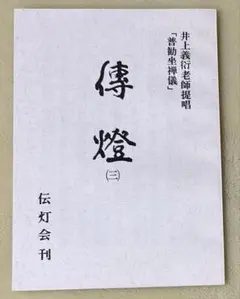 井上義衍老師提唱
「普勧坐禅儀」
傳燈
㈢
伝灯会刊